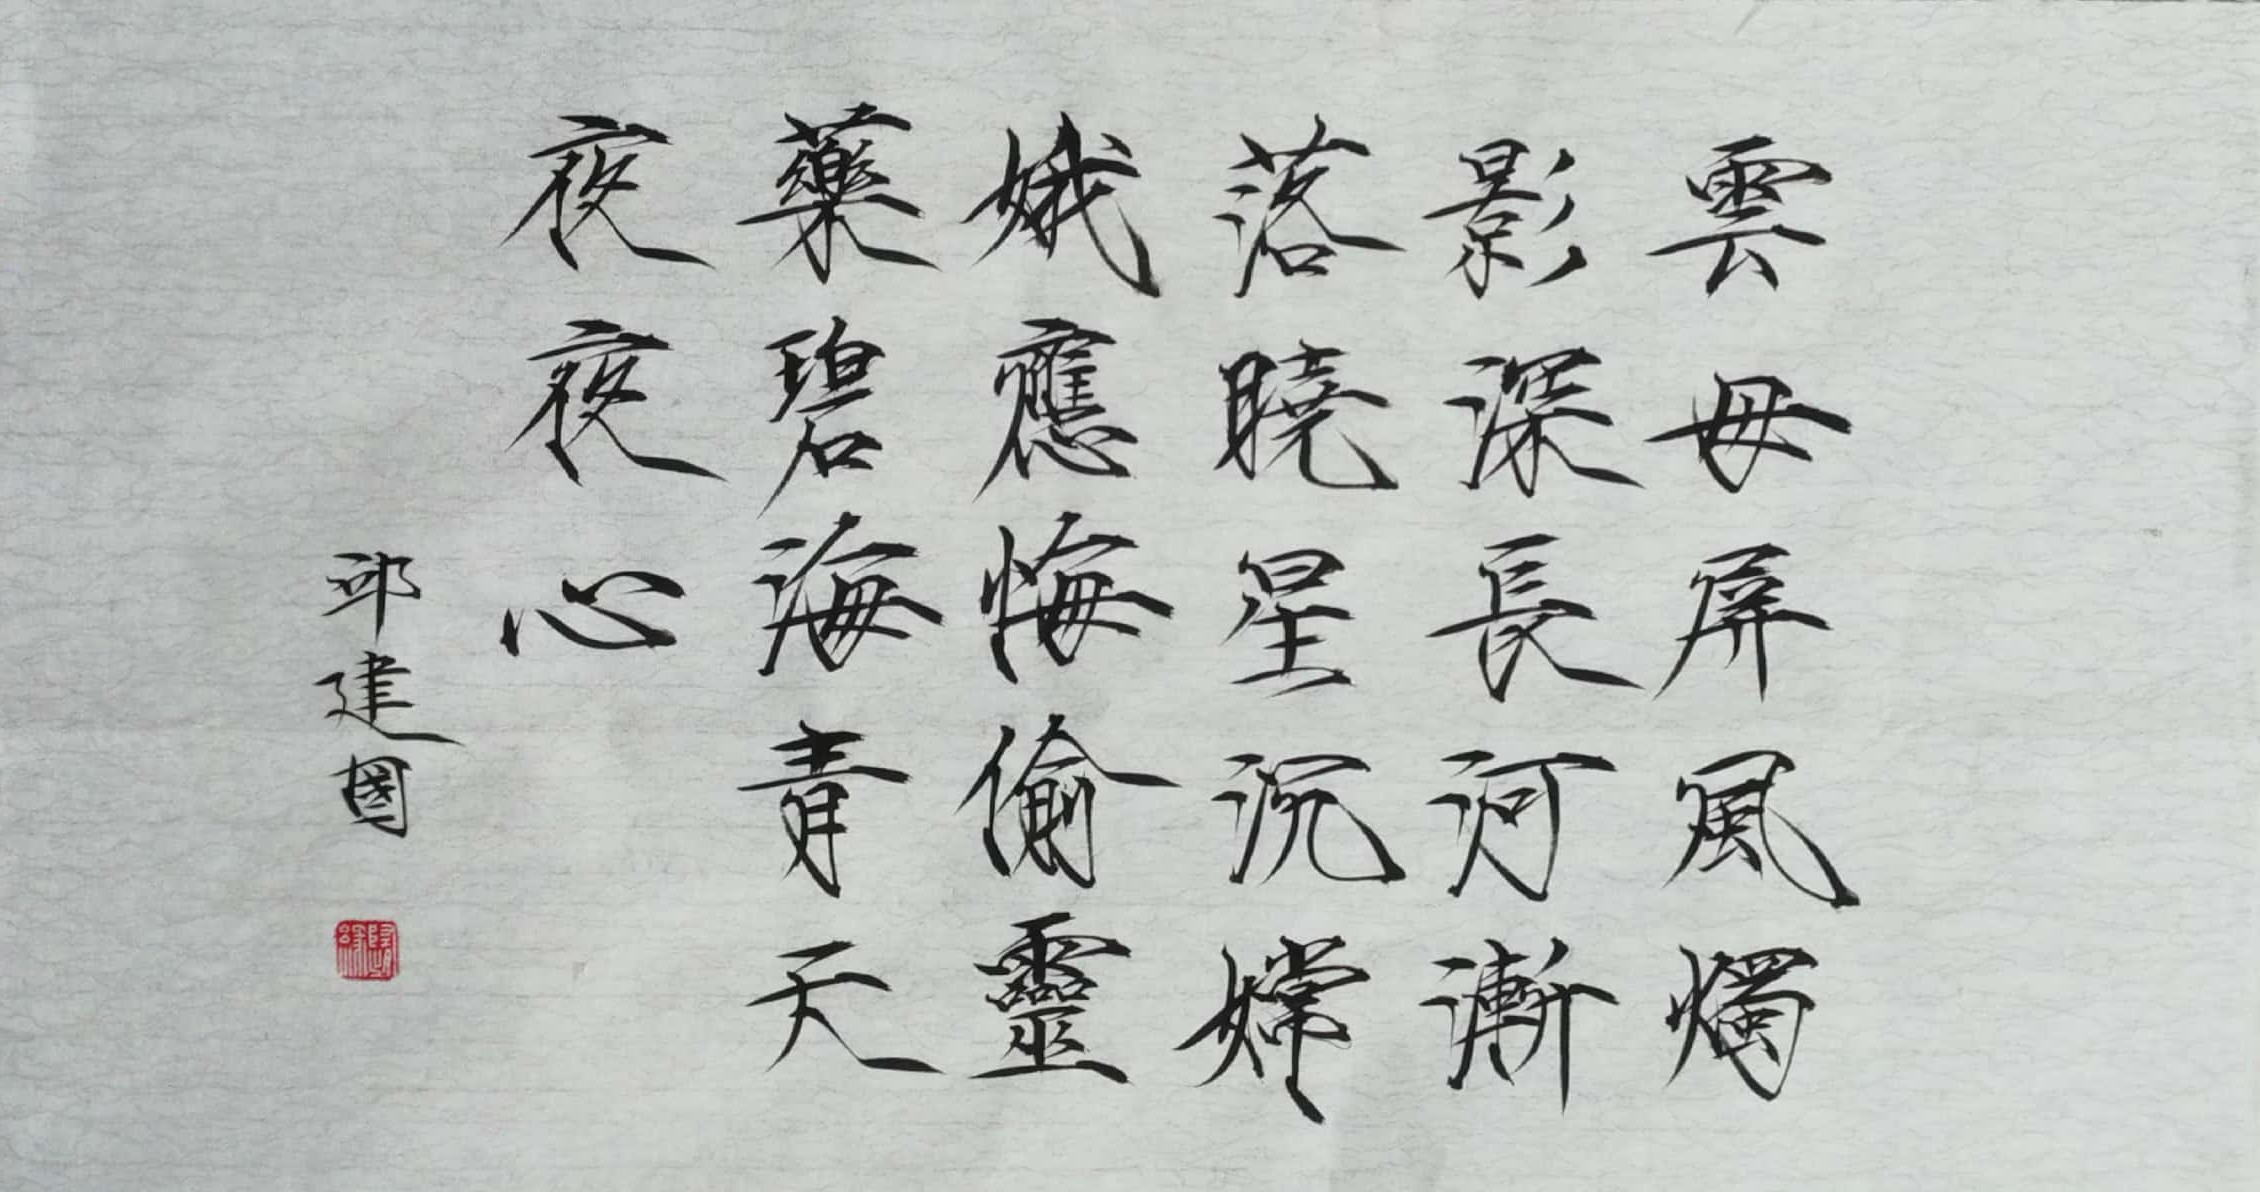 雲母屏風燭
影深長河漸
落曉星沉嫦
娥應悔偷靈
藥碧海青天
夜夜心
邱建國